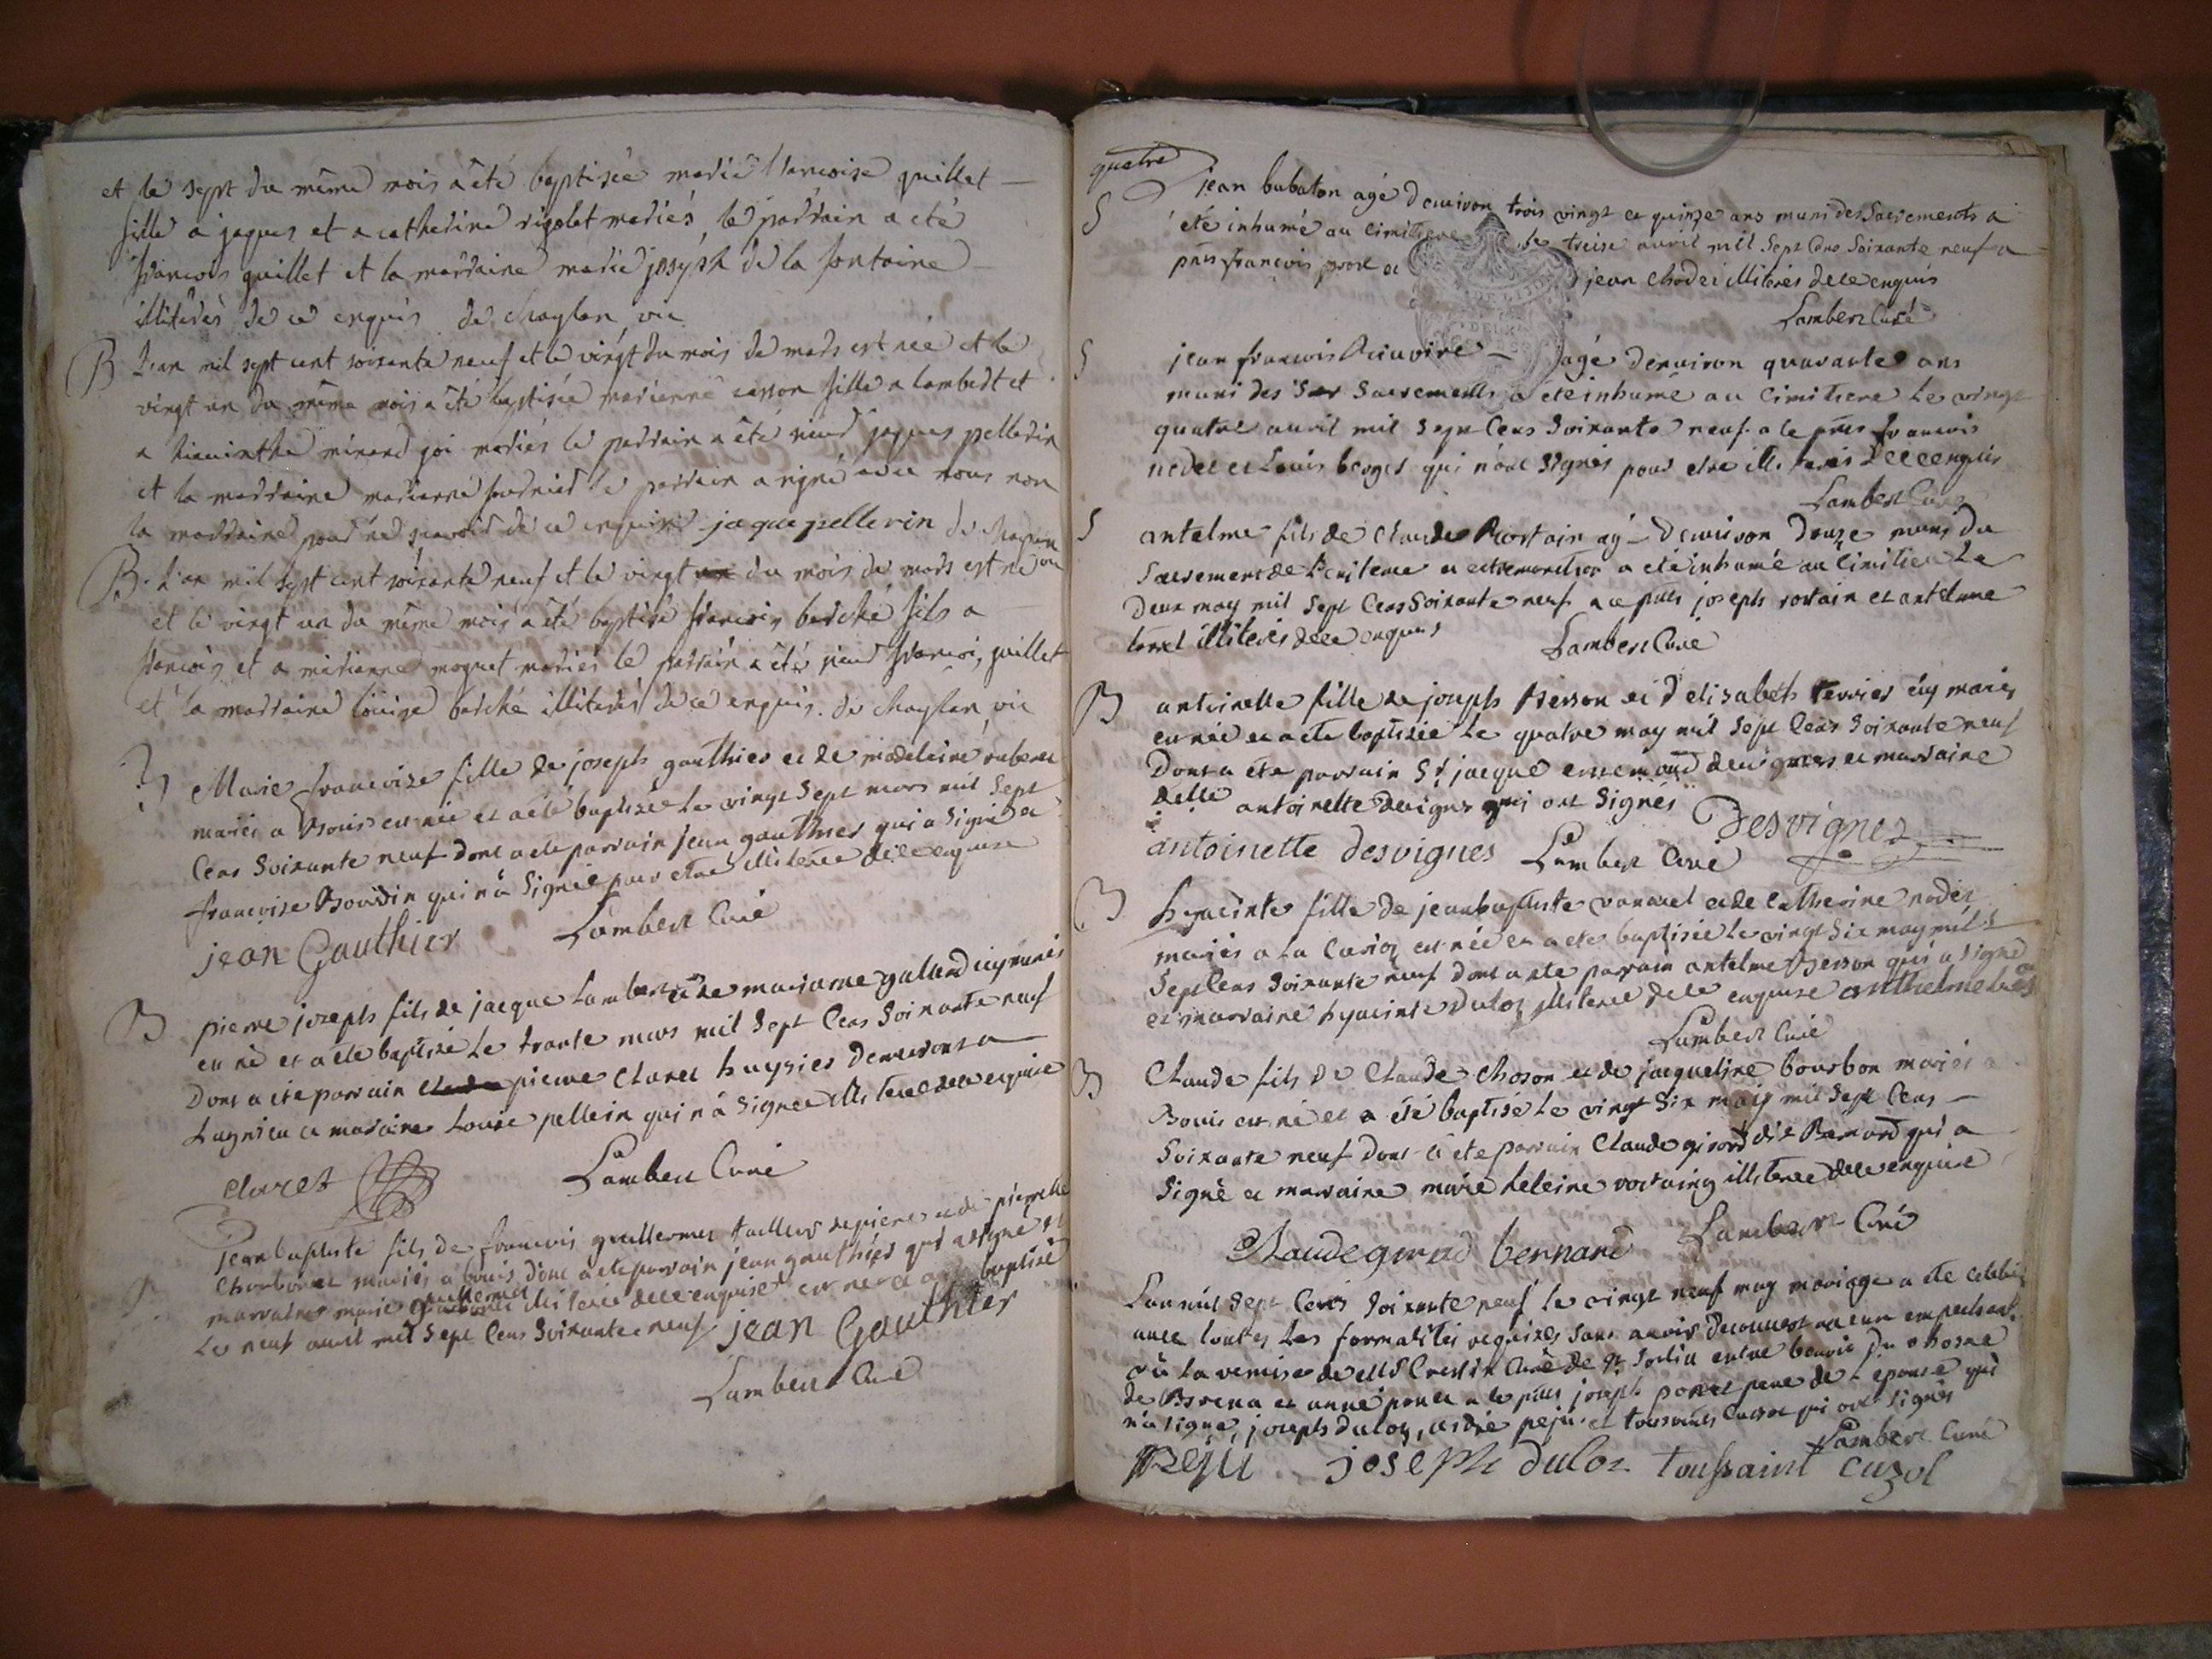 et le sept du même mois a été baptisée marie francoise quillet
fille a jaques et a catherine rigolet mariés, le parrain a été
francois quillet et la marraine marie joseph de la fontaine
illiterés de ce enquis de Chaylan vic
B L'an mil sept cent soixante neuf et le vingt du mois de mars est née et le
vingt un du même mois a été baptisée marianne casson fille a lambert et
a hiacinthe mariés le parrain a été sieur jaques pellerin
et la marraine marianne le parrain a signé avec nous non
la marraine pour ne scavoir de ce enquise jaque pellerin de Chaylan
B. L'an mil sept cent soixante neuf et le vingt du mois de mars est né
et le vingt un du même mois a été baptisé francois berché fils a
francois et a marianne moquet mariés le parrain a été sieur francois quillet
et la marraine louise berché illiterés de ce enquis. de Chaylan, vic
B Marie francoise fille de joseph gauthier et de madeleine
mariés a Bouis est née et a été baptisée Le vingt Sept mars mil Sept
Cens Soixante neuf dont a été parrain jean gauthier qui a Signé et
francoise Bourdin qui n'a Signée pour etre illiterée de ce enquise
jean Gauthier Lambert Curé
B pierre joseph fils de jacque Lambert et de mariane galland icy mariés
est né et a été baptisé Le trante mars mil Sept Cens Soixante neuf
Dont a été parrain pierre Claret huysier demeurant a
Lagnieu et maraine Louise pellerin qui n'a Signée illiterée de ce enquise
claret Lambert Curé
jean baptiste fils de francois guillermet tailleur de pierre et de pierrette
Charbonet mariés a bouis dont a été parrain jean gauthier qui a signé et
marraine marie guillermet illiterée de ce enquise est né et a été baptisé
Le neuf avril mil Sept Cens Soixante neuf jean Gauthier
Lambert Curé
quatre
S jean babaton agé d'environ trois vingt et quinze ans muni des Sacrements a
été inhumé au Cimitiere le treise avril mil Sept Cens Soixante neuf a
pnts francois et jean illiterés de ce enquis
Lambert Curé
S jean francois agé d'environ quarante ans
muni des Sacrements a été inhumé au Cimitiere Le vingt
quatre avril mil Sept Cens Soixante neuf a le pnts francois
et Louis berger qui n'ont Signés pour etre illiterés de ce enquis
Lambert Curé
S antelme fils de Claude Rostain agé D'environ Douze muni du
Sacrement de Penitence et extremonction a été inhumé au Cimitiere Le
Deux may mil Sept Cens Soixante neuf a ce pnts joseph rostain et antelme
illiterés de ce enquis Lambert Curé
B antoinette fille de joseph Besson et d'elisabeth terrier icy mariés
est née et a été baptisée Le quatre may mil Sept Cens Soixante neuf
Dont a été parrain Sr jacque desvignes et marraine
delle antoinette desvignes qui ont Signés Desvignes
antoinette desvignes Lambert Curé
B hyacinte fille de jean baptiste et de Catherine
mariés a La est née et a été baptisée Le vingt Six may mil
Sept Cens Soixante neuf dont a été parrain antelme Besson qui a signé
et marraine hyacinte Duloz illiterée de ce enquise anthelme
Lambert Curé
B Claude fils de Claude Choson et de jacqueline bourbon mariés a
Bouis est né et a été baptisé Le vingt Six may mil Sept Cens
Soixante neuf dont a été parrain Claude girord dit Bernard qui a
Signé et marraine marie heleine rostaing illiterée de ce enquise
Claude girord bernard Lambert Curé
L'an mil Sept Cens Soixante neuf le vingt neuf may mariage a été celebré
avec toutes Les formalités requises Sans avoir decouvert aucun empechement
vu La remise de Mr Crestin Curé de St Sorlin entre benoit
de et anne ponet a le pnts joseph ponet pere de L'epouse qui
n'a signé, joseph duloz, peju et toussaint qui ont Signés
Lambert Curé
peju joseph duloz toussaint cuzol